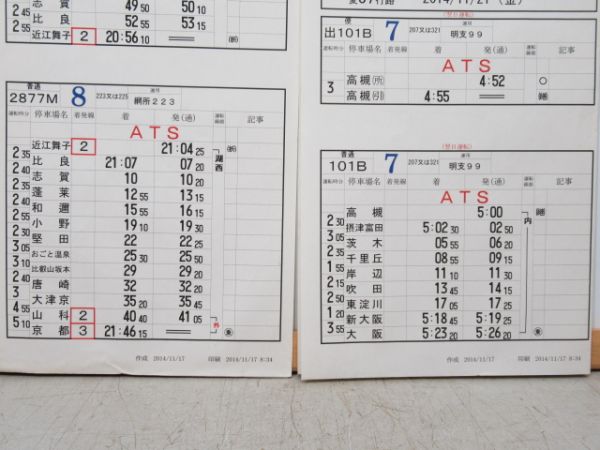 2 45 志賀 49 50 50 10
2 55 比良 52 55 53 15
近江舞子 2 20:56 10
普通 2877M 8 223又は225 運用 網所223
運転時分 停車場名 着発線 着 発(通) 記事
ATS
近江舞子 2 21:04 25
2 35 比良 21:07 07 20
2 50 志賀 10 10 20
2 35 蓬莱 12 55 13 15
2 40 和邇 15 55 16 15
2 55 小野 19 10 19 30
堅田 22 22 25
3 05 おごと温泉 25 30 25 50
比叡山坂本 29 29 20
唐崎 32 32 20
3 大津京 35 20 35 45
4 55 山科 2 40 40 41 05
5 10 京都 3 21:46 15
湖西
作成 2014/11/17 印刷 2014/11/17 8:34
2014/11/21 (金)
(翌日運転)
出101B 7 207又は321 運用 明支99
運転時分 停車場名 着発線 着 発(通) 記事
ATS
高槻(所) 4:52
3 高槻(引) 4:55
(翌日運転)
普通 101B 7 207又は321 運用 明支99
運転時分 停車場名 着発線 着 発(通) 記事
ATS
高槻 5:00
2 30 摂津富田 5:02 30 02 50
3 05 茨木 05 55 06 20
2 35 千里丘 08 55 09 15
1 55 岸辺 11 10 11 30
2 15 吹田 13 45 14 15
2 50 東淀川 17 05 17 25
1 20 新大阪 5:18 45 5:19 25
3 55 大阪 5:23 20 5:26 20
内
作成 2014/11/17 印刷 2014/11/17 8:34